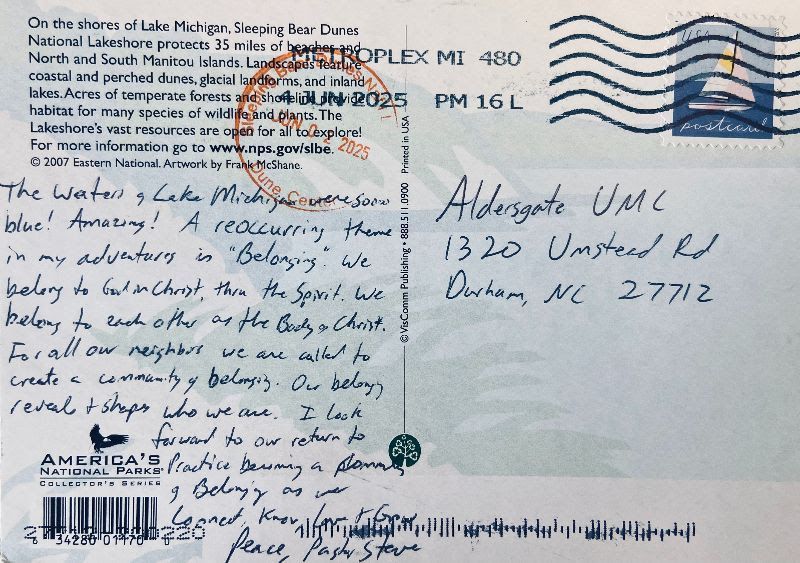 On the shores of Lake Michigan, Sleeping Bear Dunes
National Lakeshore protects 35 miles of beaches and
North and South Manitou Islands. Landscapes feature
coastal and perched dunes, glacial landforms, and inland
lakes. Acres of temperate forests and shoreline provide
habitat for many species of wildlife and plants. The
Lakeshore's vast resources are open for all to explore!
For more information go to www.nps.gov/slbe.
© 2007 Eastern National. Artwork by Frank McShane.
METROPLEX MI 480
4 JUN 2025 PM 16 L
Sleeping Bear Dunes
JUN 02 2025
Dune Center
USA
postcard
The Waters of Lake Michigan were sooo
blue! Amazing! A reoccurring theme
in my adventures is "Belonging". We
belong to God in Christ, thru the Spirit. We
belong to each other as the Body of Christ.
For all our neighbors we are called to
create a community of belonging. Our belong
reveals + shapes who we are. I look
forward to our return to
Practice becoming a
of Belonging as we
Connect, Know, Love + Grow
Peace, Pastor Steve
Aldersgate UMC
1320 Umstead Rd
Durham, NC 27712
© VisComm Publishing • 888.511.0900 Printed in USA
AMERICA'S
NATIONAL PARKS
COLLECTOR'S SERIES
6 34280 01170 0